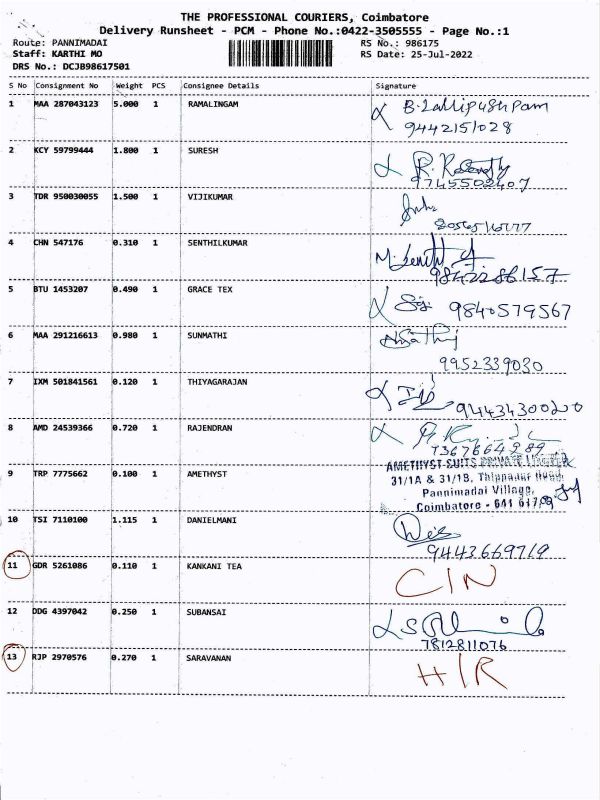 THE PROFESSIONAL COURIERS, Coimbatore
Delivery Runsheet - PCM - Phone No.:0422-3505555 - Page No.:1
Route: PANNIMADAI
RS No.: 986175
Staff: KARTHI MO
RS Date: 25-Jul-2022
DRS No.: DCJB98617501
S No Consignment No Weight PCS Consignee Details Signature
1 MAA 287043123 5.000 1 RAMALINGAM
9442151028
2 KCY 59799444 1.800 1 SURESH
9745502407
3 TDR 950030055 1.500 1 VIJIKUMAR
4 CHN 547176 0.310 1 SENTHILKUMAR
9842286157
5 BTU 1453207 0.490 1 GRACE TEX 9840579567
6 MAA 291216613 0.980 1 SUNMATHI
9952339030
7 IXM 501841561 0.120 1 THIYAGARAJAN
9443430020
8 AMD 24539366 0.720 1 RAJENDRAN
7367664989
AMETHYST SUITS PRIVATE LIMITED
9 TRP 7775662 0.100 1 AMETHYST 31/1A & 31/1B, Thippanur Road,
Pannimadai Village,
Coimbatore - 641 017
10 TSI 7110100 1.115 1 DANIELMANI
9443669719
11 GDR 5261086 0.110 1 KANKANI TEA C/N
12 DDG 4397042 0.250 1 SUBANSAI
7812811076
13 RJP 2970576 0.270 1 SARAVANAN H/R